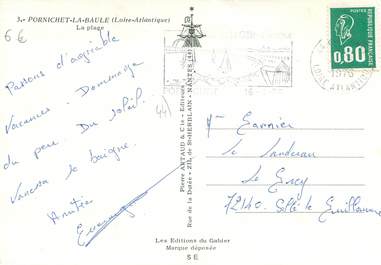 3. - PORNICHET-LA-BAULE (Loire-Atlantique)
La plage
6€
Passons d'agréable
Vacances - Dommage
du peu Du Soleil.
Vanessa se baigne.
Amitiés
44
Pierre ARTAUD & Cie - Editeurs
Rue de la Dutée - Z.I.L. de St-HERBLAIN - NANTES (44)
0,80
REPUBLIQUE FRANCAISE
1976
LOIRE ATLANTIQUE
Le
Le
72140. Sillé le Guillaume
Les Editions du Gabier
Marque déposée
SE